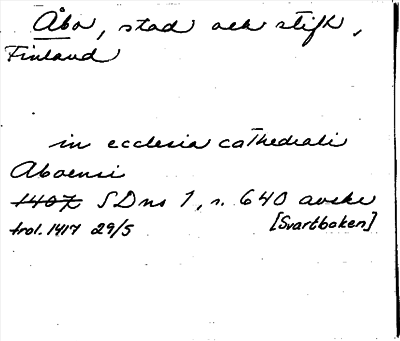 Åbo, stad och stift,
Finland
in ecclesia cathedrali
Aboensi
1407 SDns 1, s. 640 avskr
trol. 1417 29/5 [Svartboken]